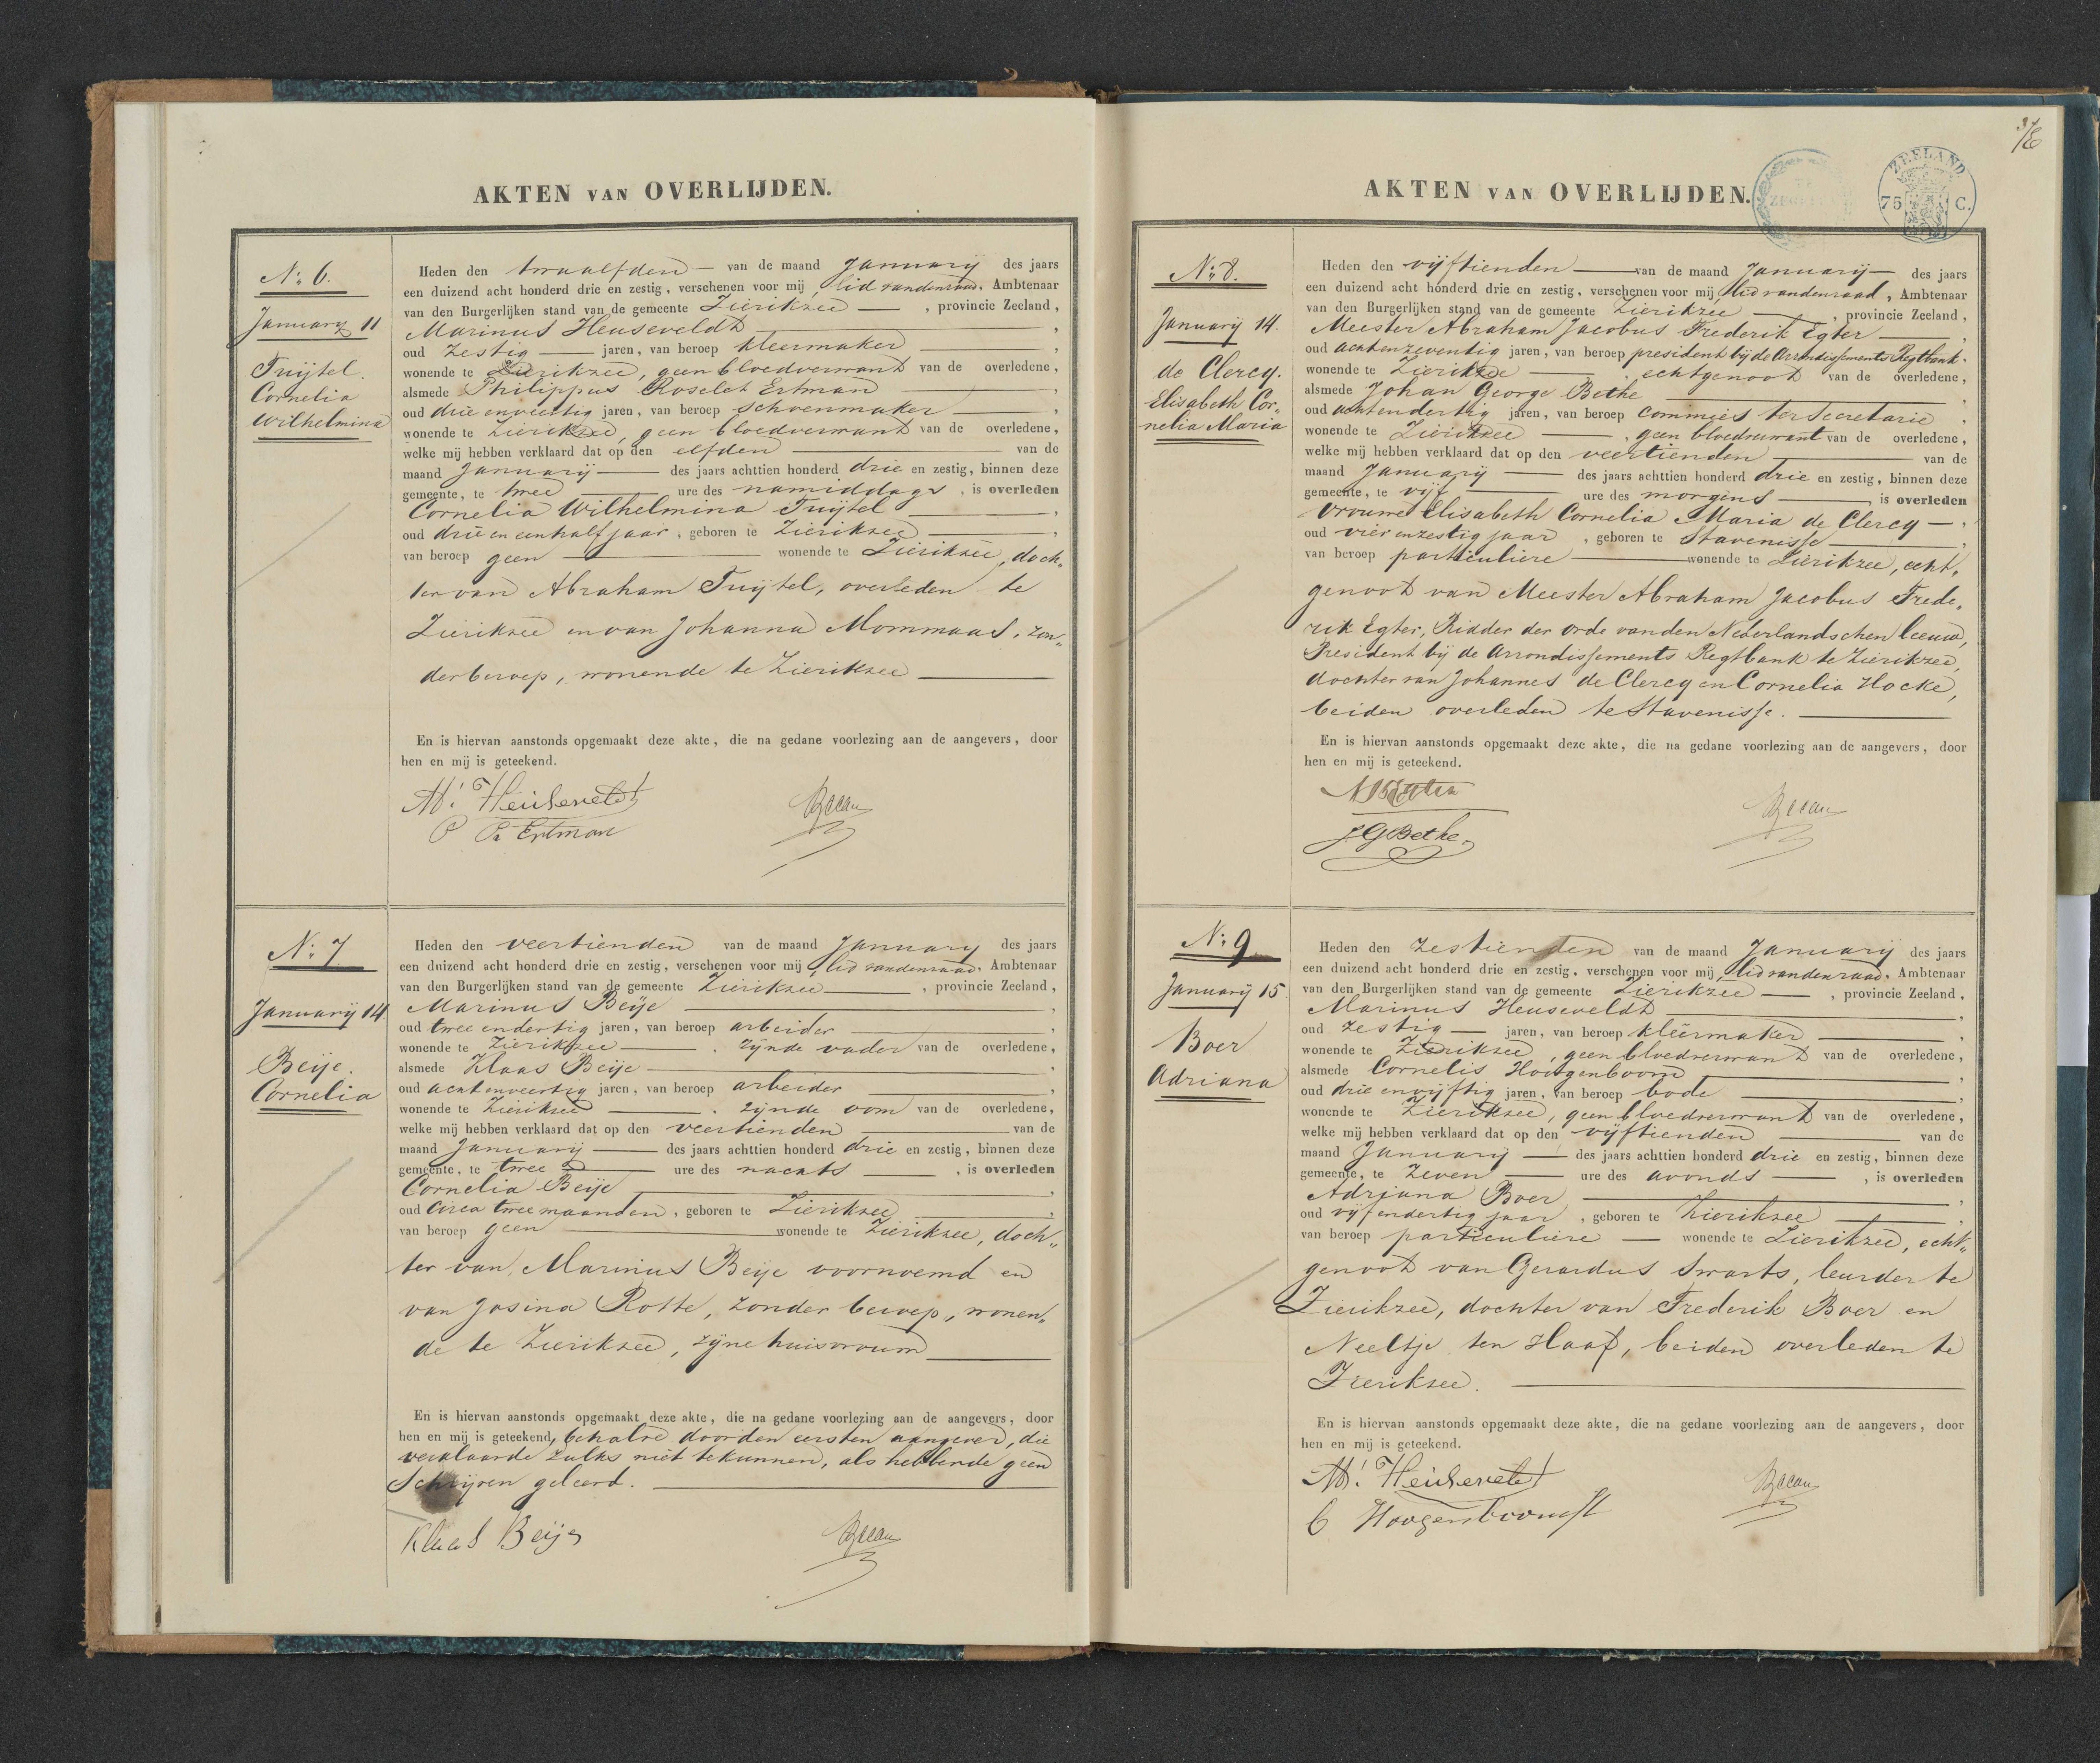 AKTEN VAN OVERLIJDEN.
No. 6.
January 11
Tuijtel.
Cornelia
Wilhelmina
Heden den twaalfden van de maand January des jaars
een duizend acht honderd drie en zestig, verschenen voor mij, lid van den raad, Ambtenaar
van den Burgerlijken stand van de gemeente Zierikzee, provincie Zeeland,
Marinus Heuseveldt,
oud zestig jaren, van beroep kleermaker,
wonende te Zierikzee, geen bloedverwant van de overledene,
alsmede Philippus Roselet Ertman,
oud drie en veertig jaren, van beroep schoenmaker,
wonende te Zierikzee, geen bloedverwant van de overledene,
welke mij hebben verklaard dat op den elfden van de
maand January des jaars achttien honderd drie en zestig, binnen deze
gemeente, te twee ure des namiddags, is overleden
Cornelia Wilhelmina Tuijtel,
oud drie en een half jaar, geboren te Zierikzee,
van beroep geen wonende te Zierikzee, doch„
ter van Abraham Tuijtel, overleden te
Zierikzee en van Johanna Mommaas, zon„
der beroep, wonende te Zierikzee
En is hiervan aanstonds opgemaakt deze akte, die na gedane voorlezing aan de aangevers, door
hen en mij is geteekend.
M. Heuseveldt
P Rs Ertman
No. 7
Januarij 14.
Beije.
Cornelia
Heden den veertienden van de maand January des jaars
een duizend acht honderd drie en zestig, verschenen voor mij, lid van den raad, Ambtenaar
van den Burgerlijken stand van de gemeente Zierikzee, provincie Zeeland,
Marinus Beije,
oud twee en dertig jaren, van beroep arbeider,
wonende te Zierikzee, zijnde vader van de overledene,
alsmede Klaas Beije,
oud acht en veertig jaren, van beroep arbeider,
wonende te Zierikzee, zijnde oom van de overledene,
welke mij hebben verklaard dat op den veertienden van de
maand Januarij des jaars achttien honderd drie en zestig, binnen deze
gemeente, te twee ure des nachts, is overleden
Cornelia Beije,
oud Circa twee maanden, geboren te Zierikzee,
van beroep geen wonende te Zierikzee, doch„
ter van Marinus Beije voornoemd en
van Josina Rotte, zonder beroep, wonen„
de te Zierikzee, zijne huisvrouw
En is hiervan aanstonds opgemaakt deze akte, die na gedane voorlezing aan de aangevers, door
hen en mij is geteekend, behalve door den eersten aangever, die
verklaarde zulks niet te kunnen, als hebbende geen
Schrijven geleerd.
Klaas Beije
AKTEN VAN OVERLIJDEN.
ZEELAND
75 C.
No. 8.
Januarij 14.
de Clercq.
Elisabeth Cor„
nelia Maria
Heden den vijftienden van de maand Januarij des jaars
een duizend acht honderd drie en zestig, verschenen voor mij, lid van den raad, Ambtenaar
van den Burgerlijken stand van de gemeente Zierikzee, provincie Zeeland,
Meester Abraham Jacobus Frederik Egter,
oud acht en zeventig jaren, van beroep president bij de Arrondissements Regtbank,
wonende te Zierikzee, echtgenoot van de overledene,
alsmede Johan George Bethe,
oud acht en dertig jaren, van beroep commies ter Secretarie,
wonende te Zierikzee, geen bloedverwant van de overledene,
welke mij hebben verklaard dat op den veertienden van de
maand Januarij des jaars achttien honderd drie en zestig, binnen deze
gemeente, te vijf ure des morgens, is overleden
Vrouwe Elisabeth Cornelia Maria de Clercq,
oud vier en zestig jaar, geboren te Stavenisse,
van beroep particuliere wonende te Zierikzee, echt„
genoot van Meester Abraham Jacobus Frede„
rik Egter, Ridder der orde van den Nederlandschen leeuw,
President bij de Arrondissements Regtbank te Zierikzee,
dochter van Johannes de Clercq en Cornelia Hocke,
beiden overleden te Stavenisse.
En is hiervan aanstonds opgemaakt deze akte, die na gedane voorlezing aan de aangevers, door
hen en mij is geteekend.
JGBethe
No. 9
Januarij 15.
Boer
Adriana
Heden den zestienden van de maand Januarij des jaars
een duizend acht honderd drie en zestig, verschenen voor mij, lid van den raad, Ambtenaar
van den Burgerlijken stand van de gemeente Zierikzee, provincie Zeeland,
Marinus Heuseveldt,
oud zestig jaren, van beroep kleermaker,
wonende te Zierikzee, geen bloedverwant van de overledene,
alsmede Cornelis Hoogenboom,
oud drie en vijftig jaren, van beroep bode,
wonende te Zierikzee, geen bloedverwant van de overledene,
welke mij hebben verklaard dat op den vijftienden van de
maand January des jaars achttien honderd drie en zestig, binnen deze
gemeente, te zeven ure des avonds, is overleden
Adriana Boer,
oud vijf en dertig jaar, geboren te Zierikzee,
van beroep particuliere wonende te Zierikzee, echt„
genoot van Gerardus Swarts, leurder te
Zierikzee, dochter van Frederik Boer en
Neeltje ten Haaf, beiden overleden te
Zierikzee.
En is hiervan aanstonds opgemaakt deze akte, die na gedane voorlezing aan de aangevers, door
hen en mij is geteekend.
M. Heuseveldt
C Hoogenboom